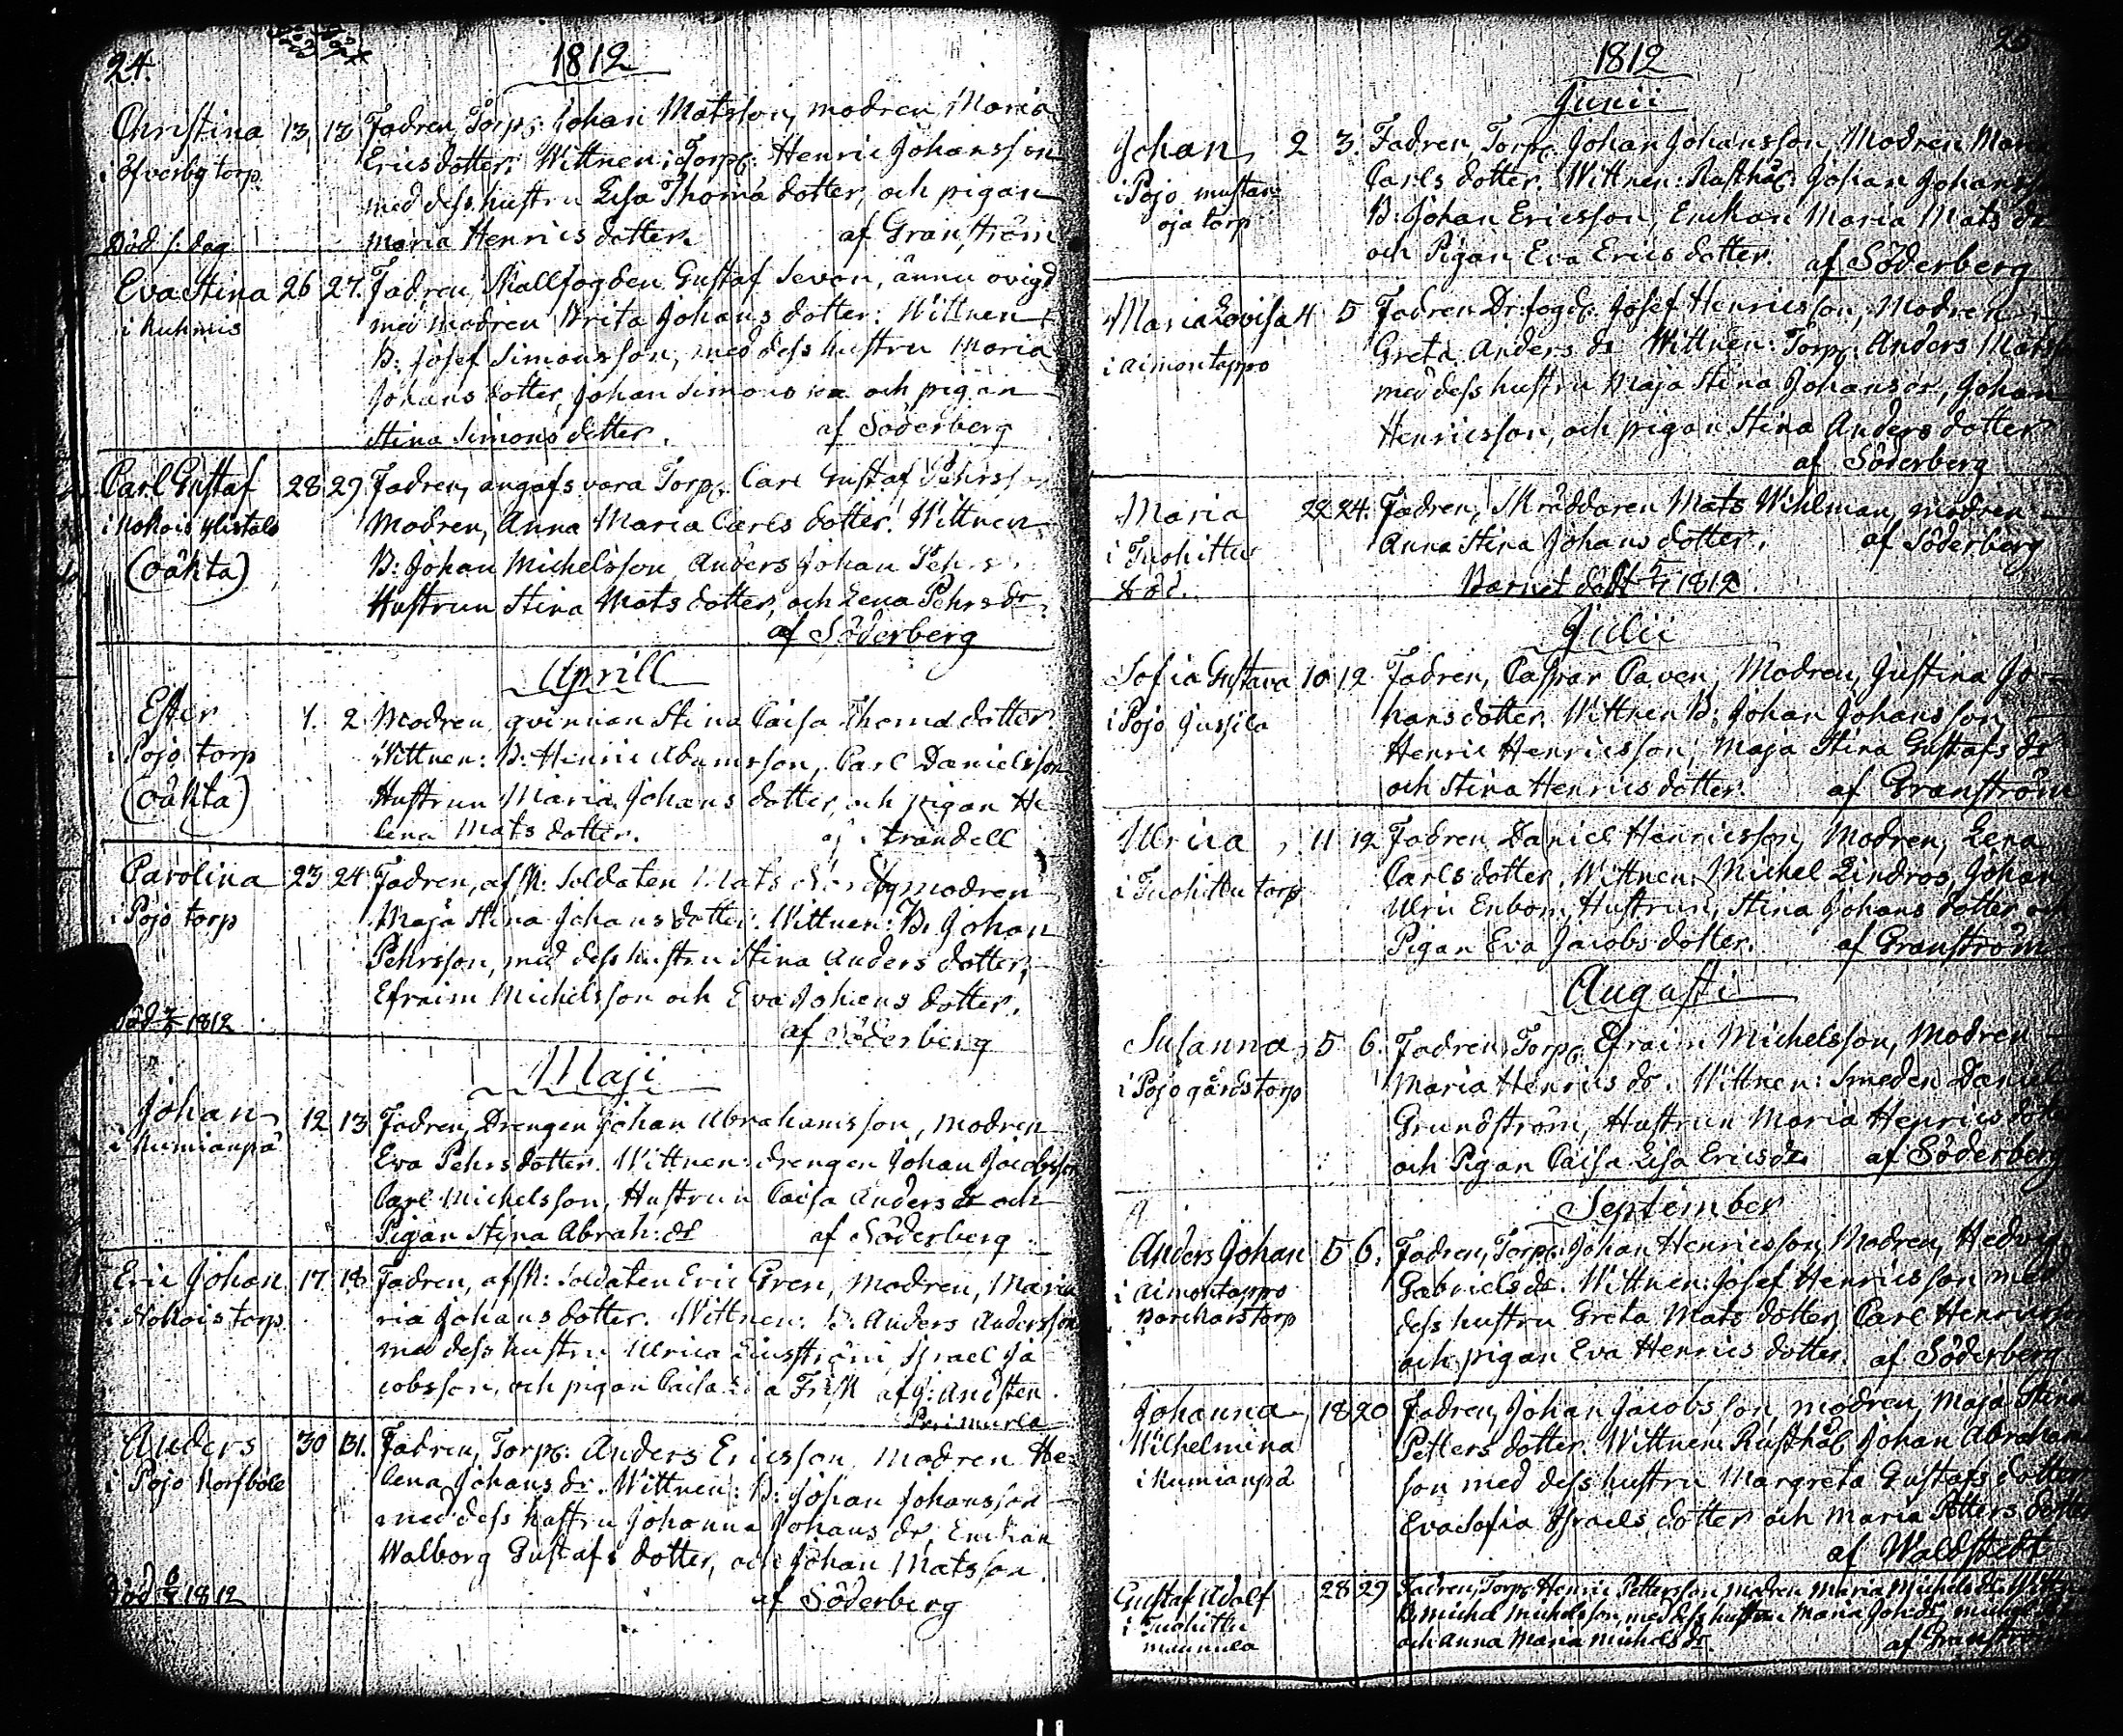 24.
1812
Christina 13, 18 Fadren, Torp: Johan Matsson, modren Maria
i Öfverby torp. Ericsdotter: Wittnen: Torp: Henric Johansson
med dess hustru Lisa Thomædotter, och pigan
Död s: dag Maria Henricsdotter. af Granström
Eva Stina 26 27. Fadren, Skallfogden Gustaf Sevon, ännu ovigd
i Kuhmis med modren Brita Johansdotter: Wittnen
B: Josef Simonsson, med dess hustru Maria
Johansdotter, Johan Simons och pigan
Stina Simonsdotter. af Söderberg
Carl Gustaf 28 29 Fadren, angafs vara Torp: Carl Gustaf Pehrsson
i Kokois Ylistalo Modren, Anna Maria Carlsdotter. Wittnen
(oäkta) B: Johan Michelsson Anders Johan Pehrs
Hustrun Stina Matsdotter, och Lena Pehrs dr
af Söderberg
Aprill
Ester 1. 2 Modren qvinnan Stina Caisa Thomædotter
i Pojo torp Wittnen: B: Henric Adamsson, Carl Danielsson
(oäkta) Hustrun Maria Johansdotter, och pigan He-
lena Matsdotter. trandell
Carolina 23 24 Fadren, afsk: Soldaten Mats modren
i Pojo torp Maja Stina Johansdotter: Wittnen: B: Johan
Pehrsson, med dess hustru Stina Andersdotter,
Efraim Michelsson och Eva Johansdotter.
Död 1812 af Söderberg
Maji
Johan 12 13 Fadren, Drengen Johan Abrahamsson, modren
i Kumianpä Eva Pehrsdotter. Wittnen: drengen Johan Jacobsson
Carl Michelsson, Hustrun Caisa Anders dr och
Pigan Stina Abrah: dr af Söderberg
Eric Johan 17 18 Fadren, afsk: Soldaten Eric Gren, modren, Maria
i Kokois torp. ria Johansdotter. Wittnen: B: Anders Andersson
med dess hustru Ulrica Israel Ja
cobsson, och pigan Caisa Frisk af G: Andsten
Pr: i murla
Anders 30 31. Fadren, Torp: Anders Ericsson Modren He-
i Pojo Korsböle lena Johans dr. Wittnen: B: Johan Johansson
med dess hustru Johanna Johans dr, Enckan
Walborg Gustafsdotter, och Johan Matsson.
Död 1812 af Söderberg
25.
1812
Junii
Johan 2 3. Fadren, Torp: Johan Johansson, Modren Mar
i Pojo mustan Carlsdotter. Wittnen: Rusthål: Johan Johansson
oja torp B: Johan Ericsson, Enckan Maria Mats dr
och Pigan Eva Ericsdotter. af Söderberg
Maria Lovisa 4 5 Fadren Dr: fogd: Josef Henricsson, Modren
i aimontappo Greta Anders dr Wittnen: Torp: Anders Mats
med dess hustru Maja Stina Johans dr, Johan
Henricsson, och pigan Stina Andersdotter
af Söderberg
Maria 22 24. Fadren, Skräddaren Mats Wihlman, modren
i Tuohittu Anna Stina Johansdotter. af Söderberg
död. Barnet dödt 1812
Julii
Sofia Gustava 10 12 Fadren, Casper Caven, Modren, Justina Jo-
i Pojo Jussila hansdotter. Wittnen B: Johan Johansson,
Henric Henricsson, Maja Stina Gustafs dr
och Stina Henricsdotter. af Granström
Ulrica 11 12 Fadren Daniel Henricsson, Modren, Lena
i Tuohittu torp Carlsdotter. Wittnen: Michel Lindros, Johan
Ulric Enbom, Hustrun, Stina Johansdotter och
Pigan Eva Jacobsdotter. af Granström
Augusti
Susanna 5 6. Fadren, Torp: Efraim Michelsson, Modren
i Pojo gårdstorp Maria Henrics dr. Wittnen: Smeden Daniel
Grundström, Hustrun Maria Henricsdotte
och Pigan Caisa Lisa Erics dr. af Söderberg
September
Anders Johan 5 6. Fadren, Torp: Johan Henricsson, Modren, Hedvig
i aimontappo Gabriels dr. Wittnen: Josef Henricsson med
Borckars torp dess hustru Greta Matsdotter, Carl Henricsson
och pigan Eva Henricsdotter. af Söderberg
Johanna 18 20 Fadren, Johan Jacobsson, modren, Maja Stina
Wilhelmina Pettersdotter. Wittnen Rusthål Johan Abraham
i Kumianpä son med dess hustru Margreta Gustafsdotter
Eva Sofia Israelsdotter och Maria Pettersdotter
af Waldstedt
Gustaf Adolf 28 29 Fadren, Torp: Henric Pettersson, modren Maria Michels dr. Wittn
i Tuohittu B Michel Michelsson, med dess hustru Maria Joh: dr,
mannula och Anna Maria Michels dr. af Granström